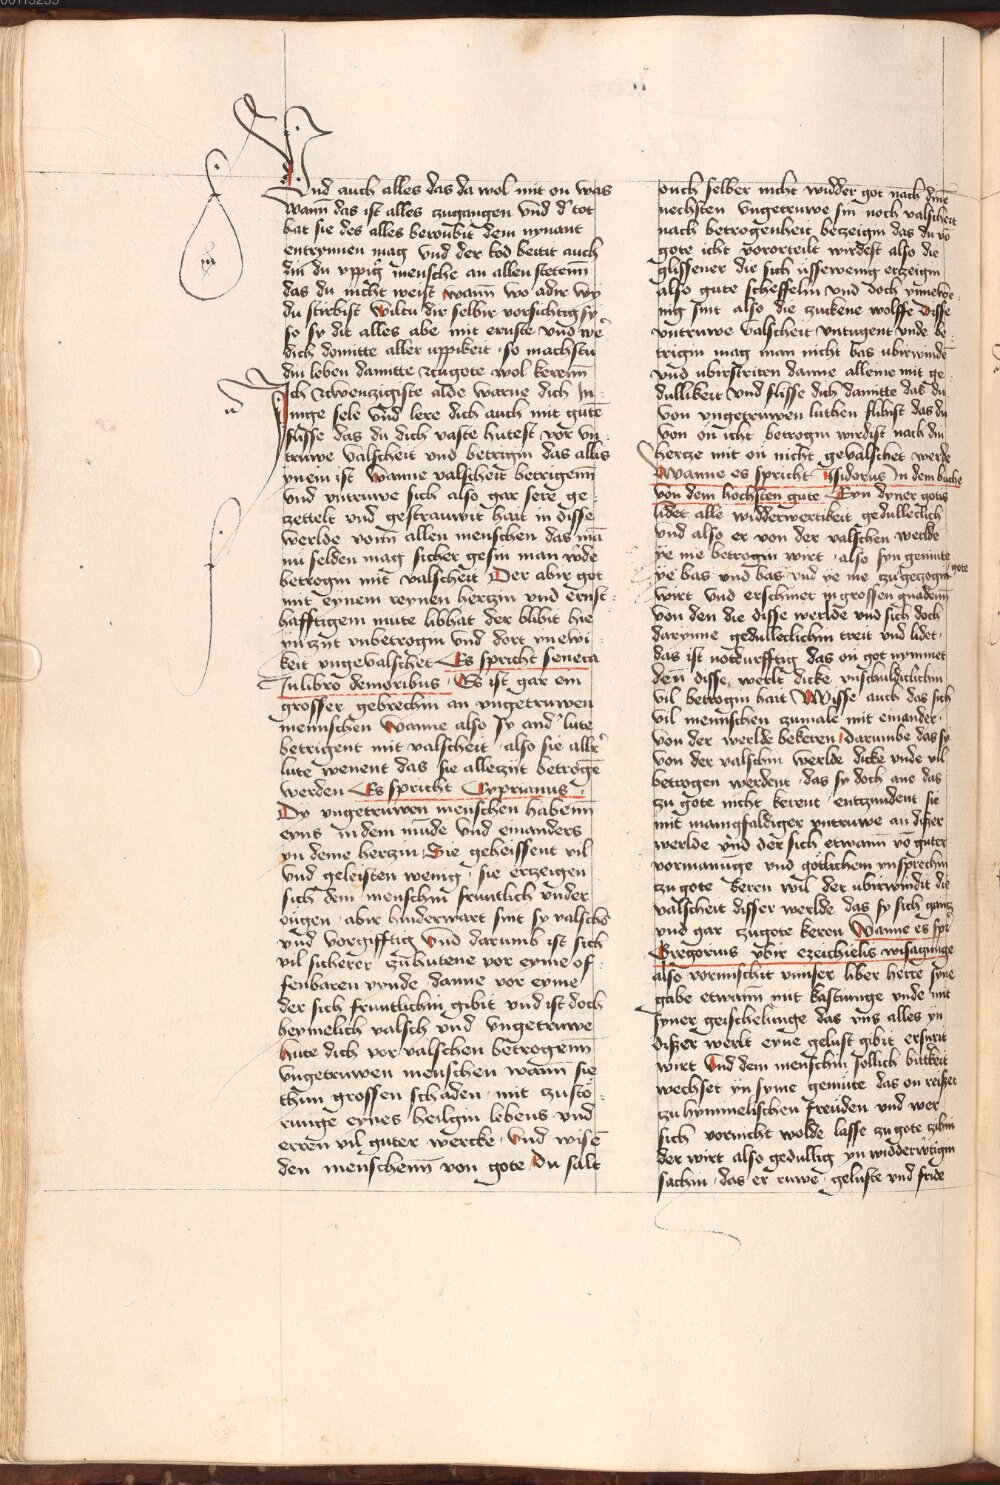 Und auch alles das da wol mit on was
wann das ist alles zugangen und d' tot
hat sie des alles beroubit dem nymant
entrynnen mag und der tod beitit auch
din du uppig mensche an allen stetenn
das du nicht weist wann wo adir wy
du stirbist Wiltu dir selbir vorsichtig sy
so sy dit alles abe mit ernste und we
dich domitte aller uppikeit · so machstu
din leben damitte zcugote wol kerenn
Ich zwenzigiste alde warne dich in
ninge sele und lere dich auch mit gute
flisse das du dich vaste hutest vor un
truwe valscheit und betrigin das allis
yn ein ist Wanne valscheit betrigenn
und untruwe sich also gar sere ge
zettelt und gestrauwit hait in disse
werlde vonn allen menschen das ma
nu selden mag sicher gesin man wde
betrogin mit valscheit Der abir got
mit eynem reynen herczin und ernst
hafftigem mute libhat der blibit hie
yn zyt unbetrogin und dort yn ewi
keit ungevalschet Es spricht seneca
In libro demoribus · Es ist gar ein
grosser gebrechin an ungetruwen
mennschen Wanne also sy and' lute
betrigent mit valscheit · also sie alle
lute wenent das sie alleziit betroge
werden Es spricht Cyprianus
Dy ungetruwen menschen habenn
eyns in dem munde und ein anders
yn deme herczin Sie geheissent vil
und geleisten wenig · sie erzeigen
sich dem menschin fruntlich under
ougen · abir hinderwart sint sy valsche
und vorgifftig Und darumb ist sich
vil sicherer zu hutene vor eyme of
fenbaren vynde danne vor eyme
der sich fruntlichin gibit und ist doch
heymelich valsch und ungetruwe
hute dich vor valschen betrogenn
ungetruwen menschen wann sie
thun grossen schaden · mit zusto
runge eynes heilgin lebens und
erren vil guter wercke · Und wise
den menschenn von gote Du salt
ouch selber nicht widder got nach dine
nechsten ungetruwe sin noch valscheit
nach betrogenheit bezeigin das du vo
gote icht vorortelt wirdest also die
glissener die sich ussewenig erzeigin
also gute scheffelin und doch ynnewe
nig sint also die zuckene wolffe Disse
untruwe valscheit untugent unde be
trigin mag man nicht bas ubirwinde
und ubirstriten danne alleine mit ge
dullikeit Und flisse dich damitte das du
von ungetruwen luthen flihist das du
von on icht betrogin wirdist nach din
hercze mit on nicht gevalschet werde
Wanne es spricht Ysidorus In dem buche
von dem hochsten gute Eyn dyner gotis
lidet alle widderwertikeit gedulleclich
und also er von der valschen werlde
ye me betrogin wirt · also syn gemute
ye bas und bas und ye me zu gezogin gote
wirt und erschinet in grossen gnadenn
von den die disse werlde und sich doch
darynne gedulleclichin treit und lidet
das ist notdurfftig das on got nymmet
den disse werlt dicke unschuldiclichin
vil betrogin hait Wisse auch das sich
vil mennschen zumale mit einander
von der werlde bekeren Darumbe das sy
von der valschin werlde dicke unde vil
betrogen werdent · das sy doch ane das
zu gote nicht kerent · entzundent sie
mit manigfaldiger untruwe an dißer
werlde und der sich etwann vo guter
vormanunge und gotlichem ynsprechin
zu gote keren wil der ubirwindit die
valscheit disser werlde das sy sich gantz
und gar zugote keren Wanne es spr
Gregorius ubir ezeichielis wissagunge
also vormischit unnser liber herre syne
gabe etwann mit kastiunge unde mit
syner geischelunge das uns alles yn
dißer werlt eyne gelust gibit ersurit
wirt Und dem menschin sollich bittkeit
wechset yn syme gemute das on reißet
zu hymmelischen freuden und wer
sich vornicht wolde lasse zu gote zihin
der wirt also gedullig yn widderwtigin
sachin · das er ruwe · geluste und fride